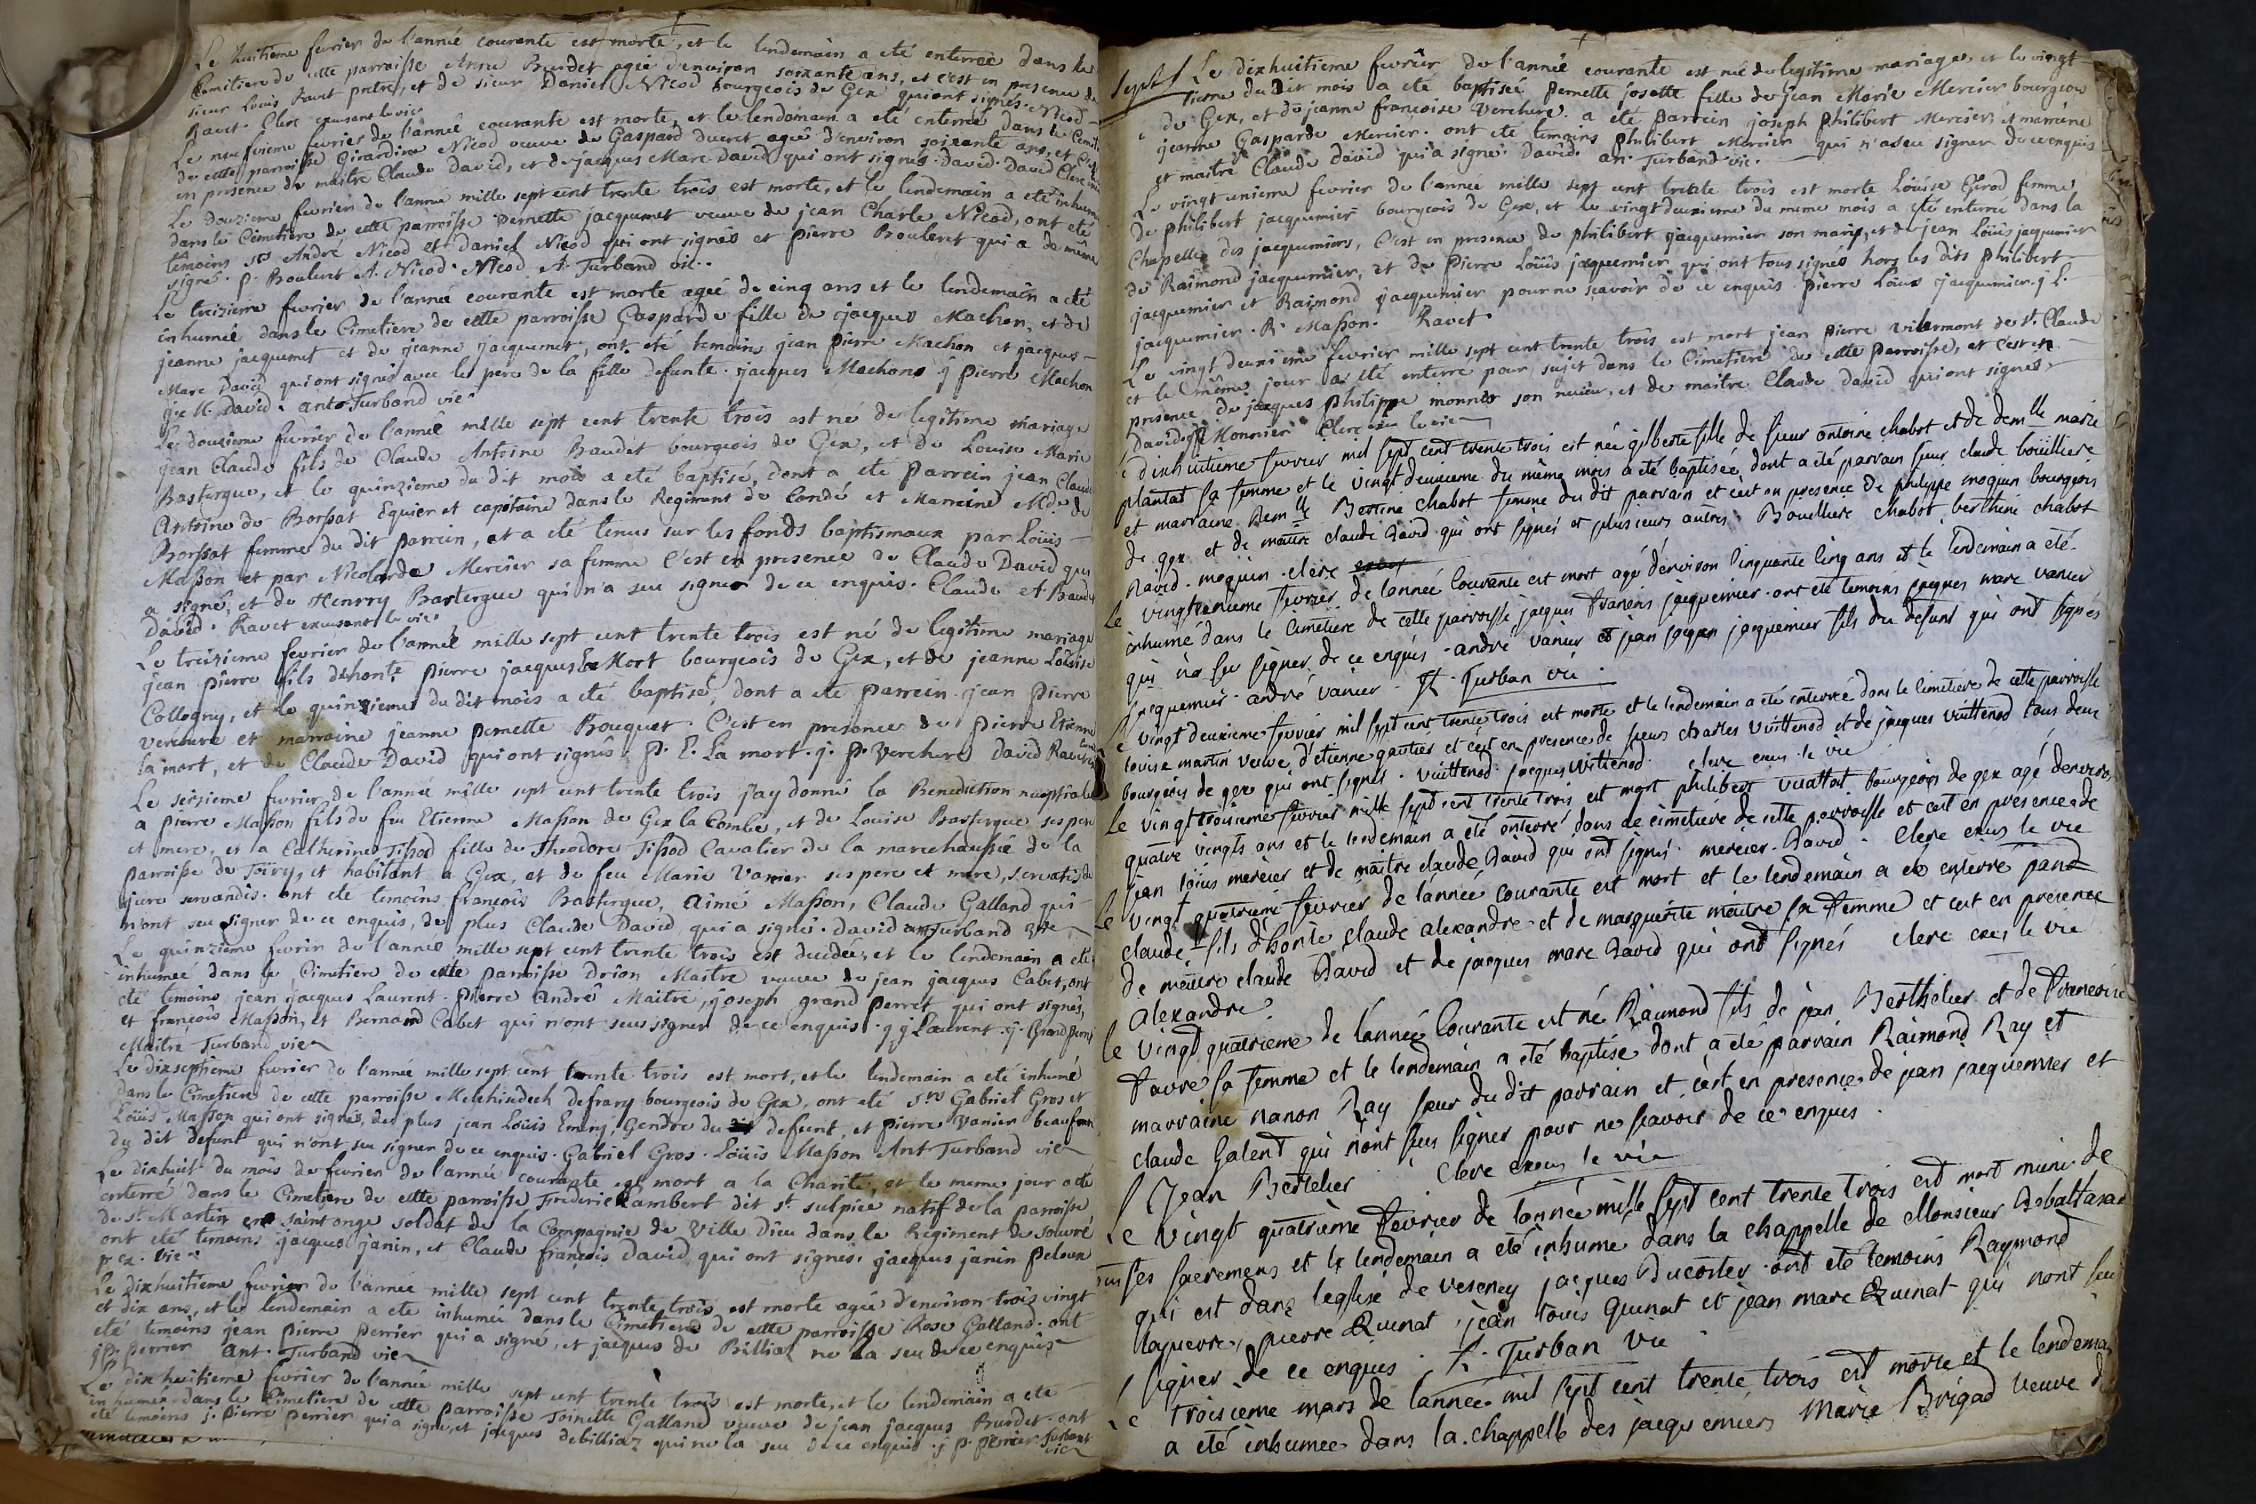 Le huitieme fevrier de l'année courante est morte, et le lendemain a eté enterrée dans le
Cemitiere de cette parroisse Anne Burdet agée d'environ soixante ans, et c'est en presence de
sieur Louis Ravet pretre, et de sieur Daniel Nicod bourgeois de Gex qui ont signés. Nicod
Ravet. Clerc levic
Le neufvieme fevrier de l'année courante est morte, et le lendemain a eté enterrée dans le Cemit
de cette parroisse Girardine Nicod veuve de Gaspard Ducret agée d'environ soixante ans, et c'est
en presence de maitre Claude David, et de jacques Marc David qui ont signés. David. David Clerc
Le Douzieme fevrier de l'année mille sept cent trente trois est morte, et le lendemain a eté inhum
dans le Cimetiere de cette parroisse Pernette jacquemet veuve de jean Charle Nicod, ont eté
temoins Srs André Nicod et Daniel Nicod qui ont signés et pierre Bouleret qui a de même
signé. p. Bouleret A. Nicod. Nicod A. Turband vic.
Le treizieme fevrier de l'année courante est morte agée de cinq ans et le lendemain a eté
inhumée dans le Cimetiere de cette parroisse Gasparde fille de jacques Machon, et de
jeanne jacquemet et de jeanne jacquemet, ont été temoins jean pierre Machon et jacques
Marc David qui ont signés avec le pere de la fille defunte. jacques Machon j pierre Machon
j. M. David. ant. Turband vic.
Le douzieme fevrier de l'année mille sept cent trente trois est né de legitime mariage
jean Claude fils de Claude Antoine Baudet bourgeois de Gex, et de Louise Marie
Bastergue, et le quinzieme du dit mois a eté baptisé, dont a eté parrein jean Claude
Antoine de Borssat Equier et capitaine dans le Regiment de Condé et Marreine Mde de
Borssat femme du dit parrein, et a eté tenus sur les fonds baptismaux par Louis
Masson et par Nicolarde Mercier sa femme c'est en presence de Claude David qui
a signé, et de Henrry Bastergue qui n'a seu signer de ce enquis. Claude A Baudet
David. Ravet excusant le vic.
Le treizieme fevrier de l'année mille sept cent trente trois est né de legitime mariage
jean pierre fils d'honte pierre jacques La Mort bourgeois de Gex, et de jeanne Loüise
Collogny, et le quinzieme du dit mois a eté baptisé, dont a eté parrein jean pierre
Verchere et marraine jeanne pernette Bouquet. C'est en presence de pierre Etienne
la mort, et de Claude David qui ont signés. P. E. La mort. j. p. Verchere David Ravet
Le seizieme fevrier de l'année mille sept cent trente trois j'ay donné la Benediction nuptiale
a pierre Masson fils de feu Etienne Masson de Gex la Combe, et de Louise Bastergue ses pere
et mere, et a Catherine Tissod fille de Theodore Tissod Cavalier de la marechaussée de la
parroisse de Toiry, et habitant a Gex, et de feu Marie Vanier ses pere et mere, servatis de
jure servandis. ont eté temoins françois Bastergue, Aimé Masson, Claude Galland qui
n'ont seu signer de ce enquis, de plus Claude David qui a signé. David ant. Turband vic
Le quinzieme fevrier de l'année mille sept cent trente trois est decedée, et le lendemain a eté
inhumée dans le Cimetiere de cette parroisse Drion Maitre veuve de jean jacques Cabet, ont
eté temoins jean jacques Laurent. pierre André Maitre, joseph grand perret qui ont signés,
et françois Masson, et Bernard Cabet qui n'ont seu signer de ce enquis. j j Laurent. j. Grand perret
Maitre Turband vic
Le dixseptieme fevrier de l'année mille sept cent trente trois est mort, et le lendemain a eté inhumé
dans le Cimetiere de cette parroisse Melchisedech defrary bourgeois de Gex, ont eté Srs Gabriel Gros et
Loüis Masson qui ont signés, de plus jean Loüis Emery, Gendre du defunt, et pierre Vanier beaufrere
du dit defunt qui n'ont seu signer de ce enquis. Gabriel Gros. Loüis Masson Ant Turband vic
Le dixhuit du mois de fevrier de l'année courante est mort a la Charité, et le meme jour a eté
enterré dans le Cimetiere de cette parroisse frederic Lambert dit st sulpice natif de la parroisse
de St Martin en saintonge soldat de la Compagnie de Ville Dieu dans le Regiment de souvré
ont eté temoins jacques janin, et Claude françois David, qui ont signés. jacques janin Peloux
p ex. vic.
Le dixhuitieme fevrier de l'année mille sept cent trente trois est morte agée d'environ trois vingt
et dix ans, et le lendemain a eté inhumée dans le Cimetiere de cette parroisse Rose Galland. ont
eté temoins jean pierre perrier qui a signé, et jacques de Billiaz ne la seu de ce enquis
jp. perrier Ant. Turband vic
Le dixhuitieme fevrier de l'année mille sept cent trente trois est morte, et le lendemain a eté
inhumée dans le Cimetiere de cette parroisse Toinette Galland veuve de jean jacques Burdet. ont
eté temoins j. Pierre perrier qui a signé, et jacques debilliaz qui ne la seu de ce enquis. j p. perrier Turband
vic
Le dixhuitieme fevrier de l'année courante est née de legitime mariage, et le vingt
tieme du dit mois a eté baptisée Pernette josette fille de jean Marie Mercier bourgeois
de Gex, et de jeanne françoise Verchere. a eté parrein joseph philibert Mercier, et marreine
jeanne Gasparde Mercier. ont eté temoins philibert Mercier qui n'a seu signer de ce enquis
et maitre Claude david qui a signé. David. an. Turband vic.
Le vingt unieme fevrier de l'année mille sept cent trente trois est morte Loüise Girod femme
de philibert jacquemier bourgeois de Gex, et le vingt deuxieme du meme mois a eté enterrée dans la
Chapelle des jacquemiers, c'est en presence de philibert jacquemier son mary, et de jean Loüis jacquemier
de Raimond jacquemier, et de Pierre Loüis jacquemier qui ont tous signés hors les dits philibert
jacquemier et Raimond jacquemier pour ne scavoir de ce enquis. pierre Loüis jacquemier. j L.
jacquemier. R. Masson. Ravet.
Le vingt deuxieme fevrier mille sept cent trente trois est mort jean pierre vilermont de St Claude
et le même jour a eté enterré pour sujet dans le Cimetiere de cette parroisse, et c'est en
presence de jacques philippe monnier son neveu, et de maitre Claude David qui ont signés.
David Monnier Clerc exu le vic
Le dixhuitieme fevrier mil sept cent trente trois est née gilberte fille de sieur antoine chabot et de demlle marie
plantat sa femme et le vingt deuxieme du même mois a été baptisée, dont a été parrain sieur claude boüilliere
et marraine demlle Bertine chabot femme du dit parrain et c'est en presence de philippe moquin bourgeois
de gex et de maitre claude David qui ont signés et plusieurs autres. Bouilliere chabot berthine chabot
David. moquin. clerc
Le vingtunieme fevrier de l'année Courante est mort agé d'environ cinquante cinq ans et le lendemain a eté
inhumé dans le cimetiere de cette parroisse jacques francois jacquemier. ont eté temoins jacques marc vanier
qui n'a seu signer de ce enquis. andré vanier et jean jacquemier fils du defunt qui ont signés
jacquemier. andré vanier. A. Turban vic.
Le vingt deuxieme fevrier mil sept cent trente trois est morte et le lendemain a été enterrée dans le cimetiere de cette parroisse
louise martin veuve d'etienne gautier et c'est en presence de sieurs charles vuittenod et de jacques vuittenod tous deux
bourgeois de gex qui ont signés. vuittenod. jacques vuittenod. clerc exus. le vic
Le vingt troisieme fevrier mille sept cent trente trois est mort philibert vuattat bourgeois de gex agé denviron
quatre vingts ans et le lendemain a été enterré dans le cimetiere de cette parroisse et c'est en presence de
jean loüis mercier et de maitre claude David qui ont signés. mercier. David. clerc exus le vic
Le vingt quatrieme fevrier de l'année courante est mort et le lendemain a eté enterré
claude fils d'honte claude alexandre et de marguerite maitre sa femme et c'est en presence
de maitre claude David et de jacques marc David qui ont signés clerc exus le vic
alexandre.
le vingt quatrieme de l'année Courante est né Raimond fils de jean Berthelier et de francoise
favre sa femme et le lendemain a eté baptisé dont a été parrain Raimond Ray et
marraine nanon Ray sœur du dit parrain et c'est en presence de jean jacquemier et
claude galent qui n'ont seu signer pour ne scavoir de ce enquis.
Jean Bertelier clerc exus le vic
Le vingt quatrième fevrier de l'année mille sept cent trente trois est mort muni de
ses sacremens et le lendemain a été inhumé dans la chappelle de Monsieur Debaltasar
qui est dans leglise de vesency jacques Ducoster. ont été temoins Raymond
laquerre, pierre Quinat, jean Louis Quinat et jean marc Quinat qui nont seu
signer de ce enques. A. Turban vic
Le troisieme mars de l'année mil sept cent trente trois est morte et le lendemai
a été inhumee dans la chappelle des jacquemiers Marie Brigad veuve d